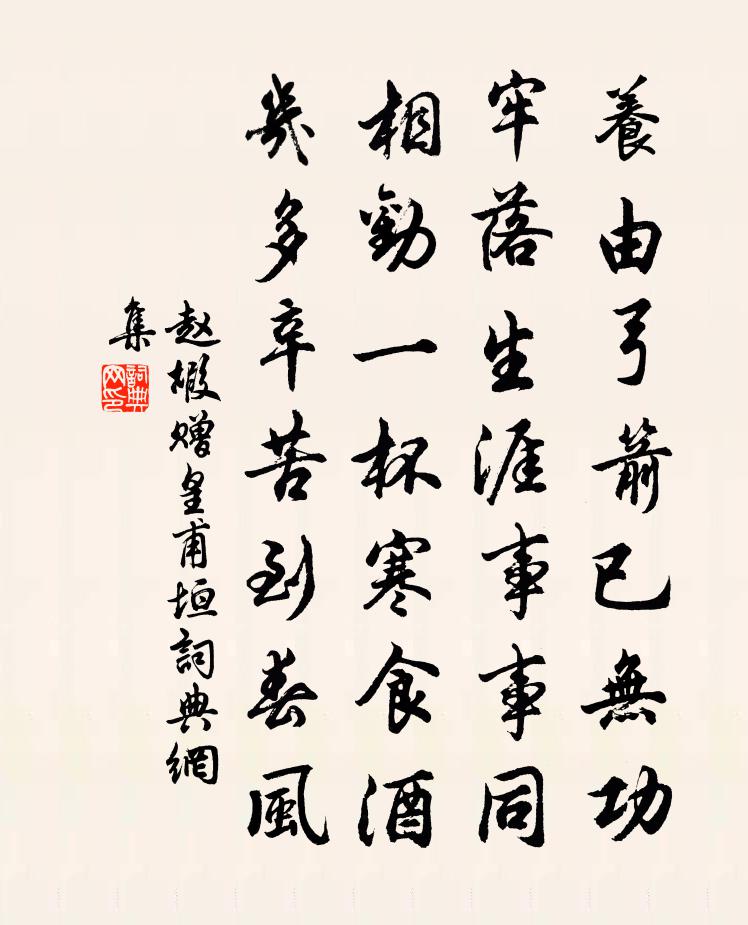 養由弓箭已無功
牢落生涯事事同
相勸一杯寒食酒
幾多辛苦到春風
赵嘏赠皇甫垣詞典網
集
詞典
网印